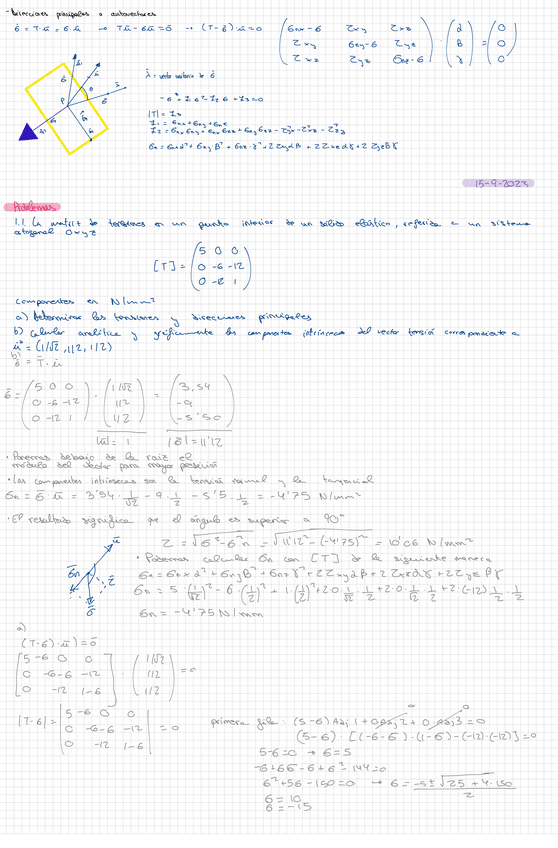 - Direcciones principales o autovectores
σ̄ = T·ū = σ·ū ⇒ Tū - σū = ō → (T-σ)·ū = 0
(σnx-σ τxy τxz
τxy σny-σ τyz
τxz τyz σnz-σ) · (α β γ) = (0 0 0)
λ̄ = vector unitario de σ̄
-σ³ + I₁σ² - I₂σ + I₃ = 0
|T| = I₃
I₁ = σnx + σny + σnz
I₂ = σnx σny + σnx σnz + σny σnz - τ²xy - τ²xz - τ²yz
σn = σnx α² + σny β² + σnz γ² + 2τxy αβ + 2τxz αγ + 2τyz βγ
15-9-2023
Problemas
1.1. La matriz de tensiones en un punto interior de un sólido elástico, referida a un sistema
ortogonal Oxyz
[T] = (5 0 0
0 -6 -12
0 -12 1)
componentes en N/mm²
a) Determinar las tensiones y direcciones principales
b) Calcular analítica y gráficamente las componentes intrínsecas del vector tensión correspondiente a
ū = (1/√2, 1/2, 1/2)
b)
σ̄ = T̄·ū
σ̄ = (5 0 0
0 -6 -12
0 -12 1) · (1/√2 1/2 1/2) = (3,54 -9 -5'50)
|ū| = 1 |σ̄| = 11'12
· Ponemos debajo de la raíz el
módulo del vector para mayor precisión
· Las componentes intrínsecas son la tensión normal y la tangencial
σn = σ̄·ū = 3'54 · 1/√2 - 9 · 1/2 - 5'5 · 1/2 = -4'75 N/mm²
· El resultado significa que el ángulo es superior a 90°
τ = √σ²-σ²n = √11'12²-(-4'75)² = 10'06 N/mm²
· Podemos calcular σn con [T] de la siguiente manera
σn = σnx α² + σny β² + σnz γ² + 2τxy αβ + 2τxz αγ + 2τyz βγ
σn = 5·(1/√2)² - 6·(1/2)² + 1·(1/2)² + 2·0·1/√2·1/2 + 2·0·1/√2·1/2 + 2·(-12)·1/2·1/2
σn = -4'75 N/mm
a)
(T-σ)·ū = ō
[5-σ 0 0
0 -6-σ -12
0 -12 1-σ] · (1/√2 1/2 1/2) = 0
|T-σ| = |5-σ 0 0
0 -6-σ -12
0 -12 1-σ| = 0
primera fila: (5-σ) Adj 1 + 0 Adj 2 + 0 Adj 3 = 0
(5-σ)·[(-6-σ)·(1-σ)-(-12)·(-12)] = 0
5-σ = 0 → σ = 5
-6+6σ-σ+σ²-144 = 0
σ²+5σ-150 = 0 → σ = -5±√25+4·150 / 2
σ = 10
σ = -15